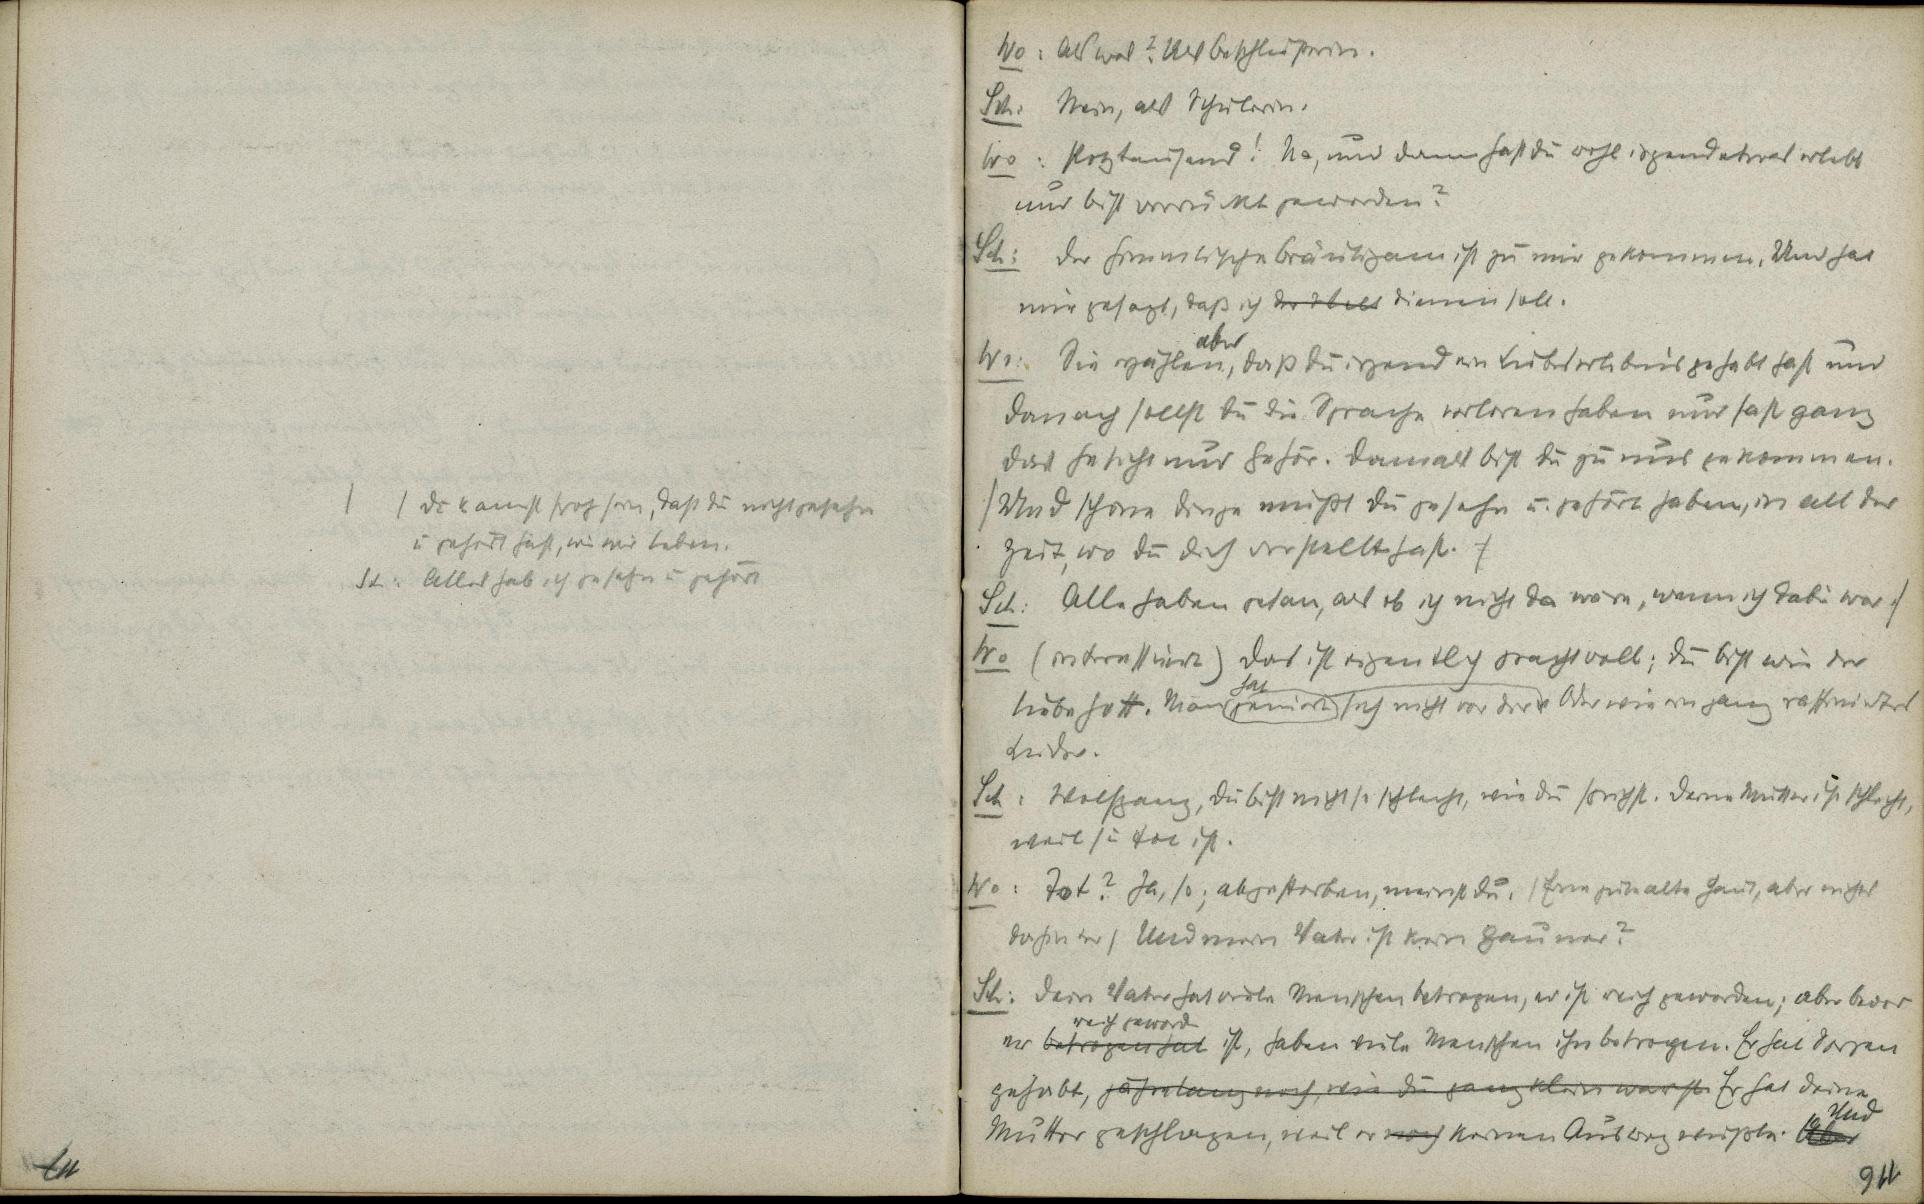 / / Du kannst froh sein, daß du nicht gesehn
u gehört hast, wie wir leben.
Sch: Alles hab ich gesehn u gehört
Wo: Als was? Als Beschließerin.
Sch: Nein, als Schülerin.
Wo: Potztausend! Na, und dann hast du wohl irgendetwas erlebt
und bist verrückt geworden?
Sch: Der himmlische Bräutigam ist zu mir gekommen. Und hat
mir gesagt, daß ich dienen soll.
aber
Wo: Sie erzählen, daß du irgend ein Liebeserlebnis gehabt hast und
danach sollst du die Sprache verloren haben und fast ganz
das Gesicht und Gehör. Damals bist du zu uns gekommen.
/ Und schöne Dinge mußt du gesehn u. gehört haben, in all der
Zeit, wo du dich verstellt hast. /
Sch: Alle haben getan, als ob ich nicht da wäre, wenn ich dabei war. /
Wo (interessiert) Das ist eigentlich prachtvoll; du bist wie der
hat
liebe Gott. Man geniert sich nicht vor dir. Oder wie ein ganz raffiniertes
Luder.
Sch: Wolfgang, du bist nicht so schlecht, wie du sprichst. Deine Mutter ist schlecht,
weil sie tot ist.
Wo: Tot? Ja, so; abgestorben, meinst du. / Eine gute alte Haut, aber nichts
dahinter / Und mein Vater ist kein Gauner?
Sch: Dein Vater hat viele Menschen betrogen, er ist reich geworden; aber bevor
reich geword
er betrogen hat ist, haben viele Menschen ihn betrogen. Er hat Sorgen
gehabt, jahrelang noch, wie du ganz klein warst. Er hat deine
Mutter geschlagen, weil er noch keinen Ausweg wußte. Aber
Und
116